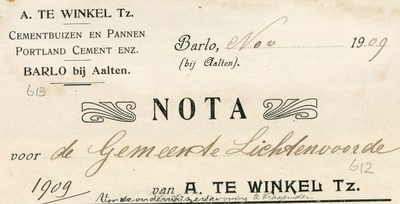 A. TE WINKEL Tz.
CEMENTBUIZEN EN PANNEN
PORTLAND CEMENT ENZ.
BARLO bij Aalten.
613
Barlo, Nov 1909
(bij Aalten).
NOTA
voor de Gemeente Lichtenvoorde
612
1909 van A. TE WINKEL Tz.
Voor de onderwijzerswoning te